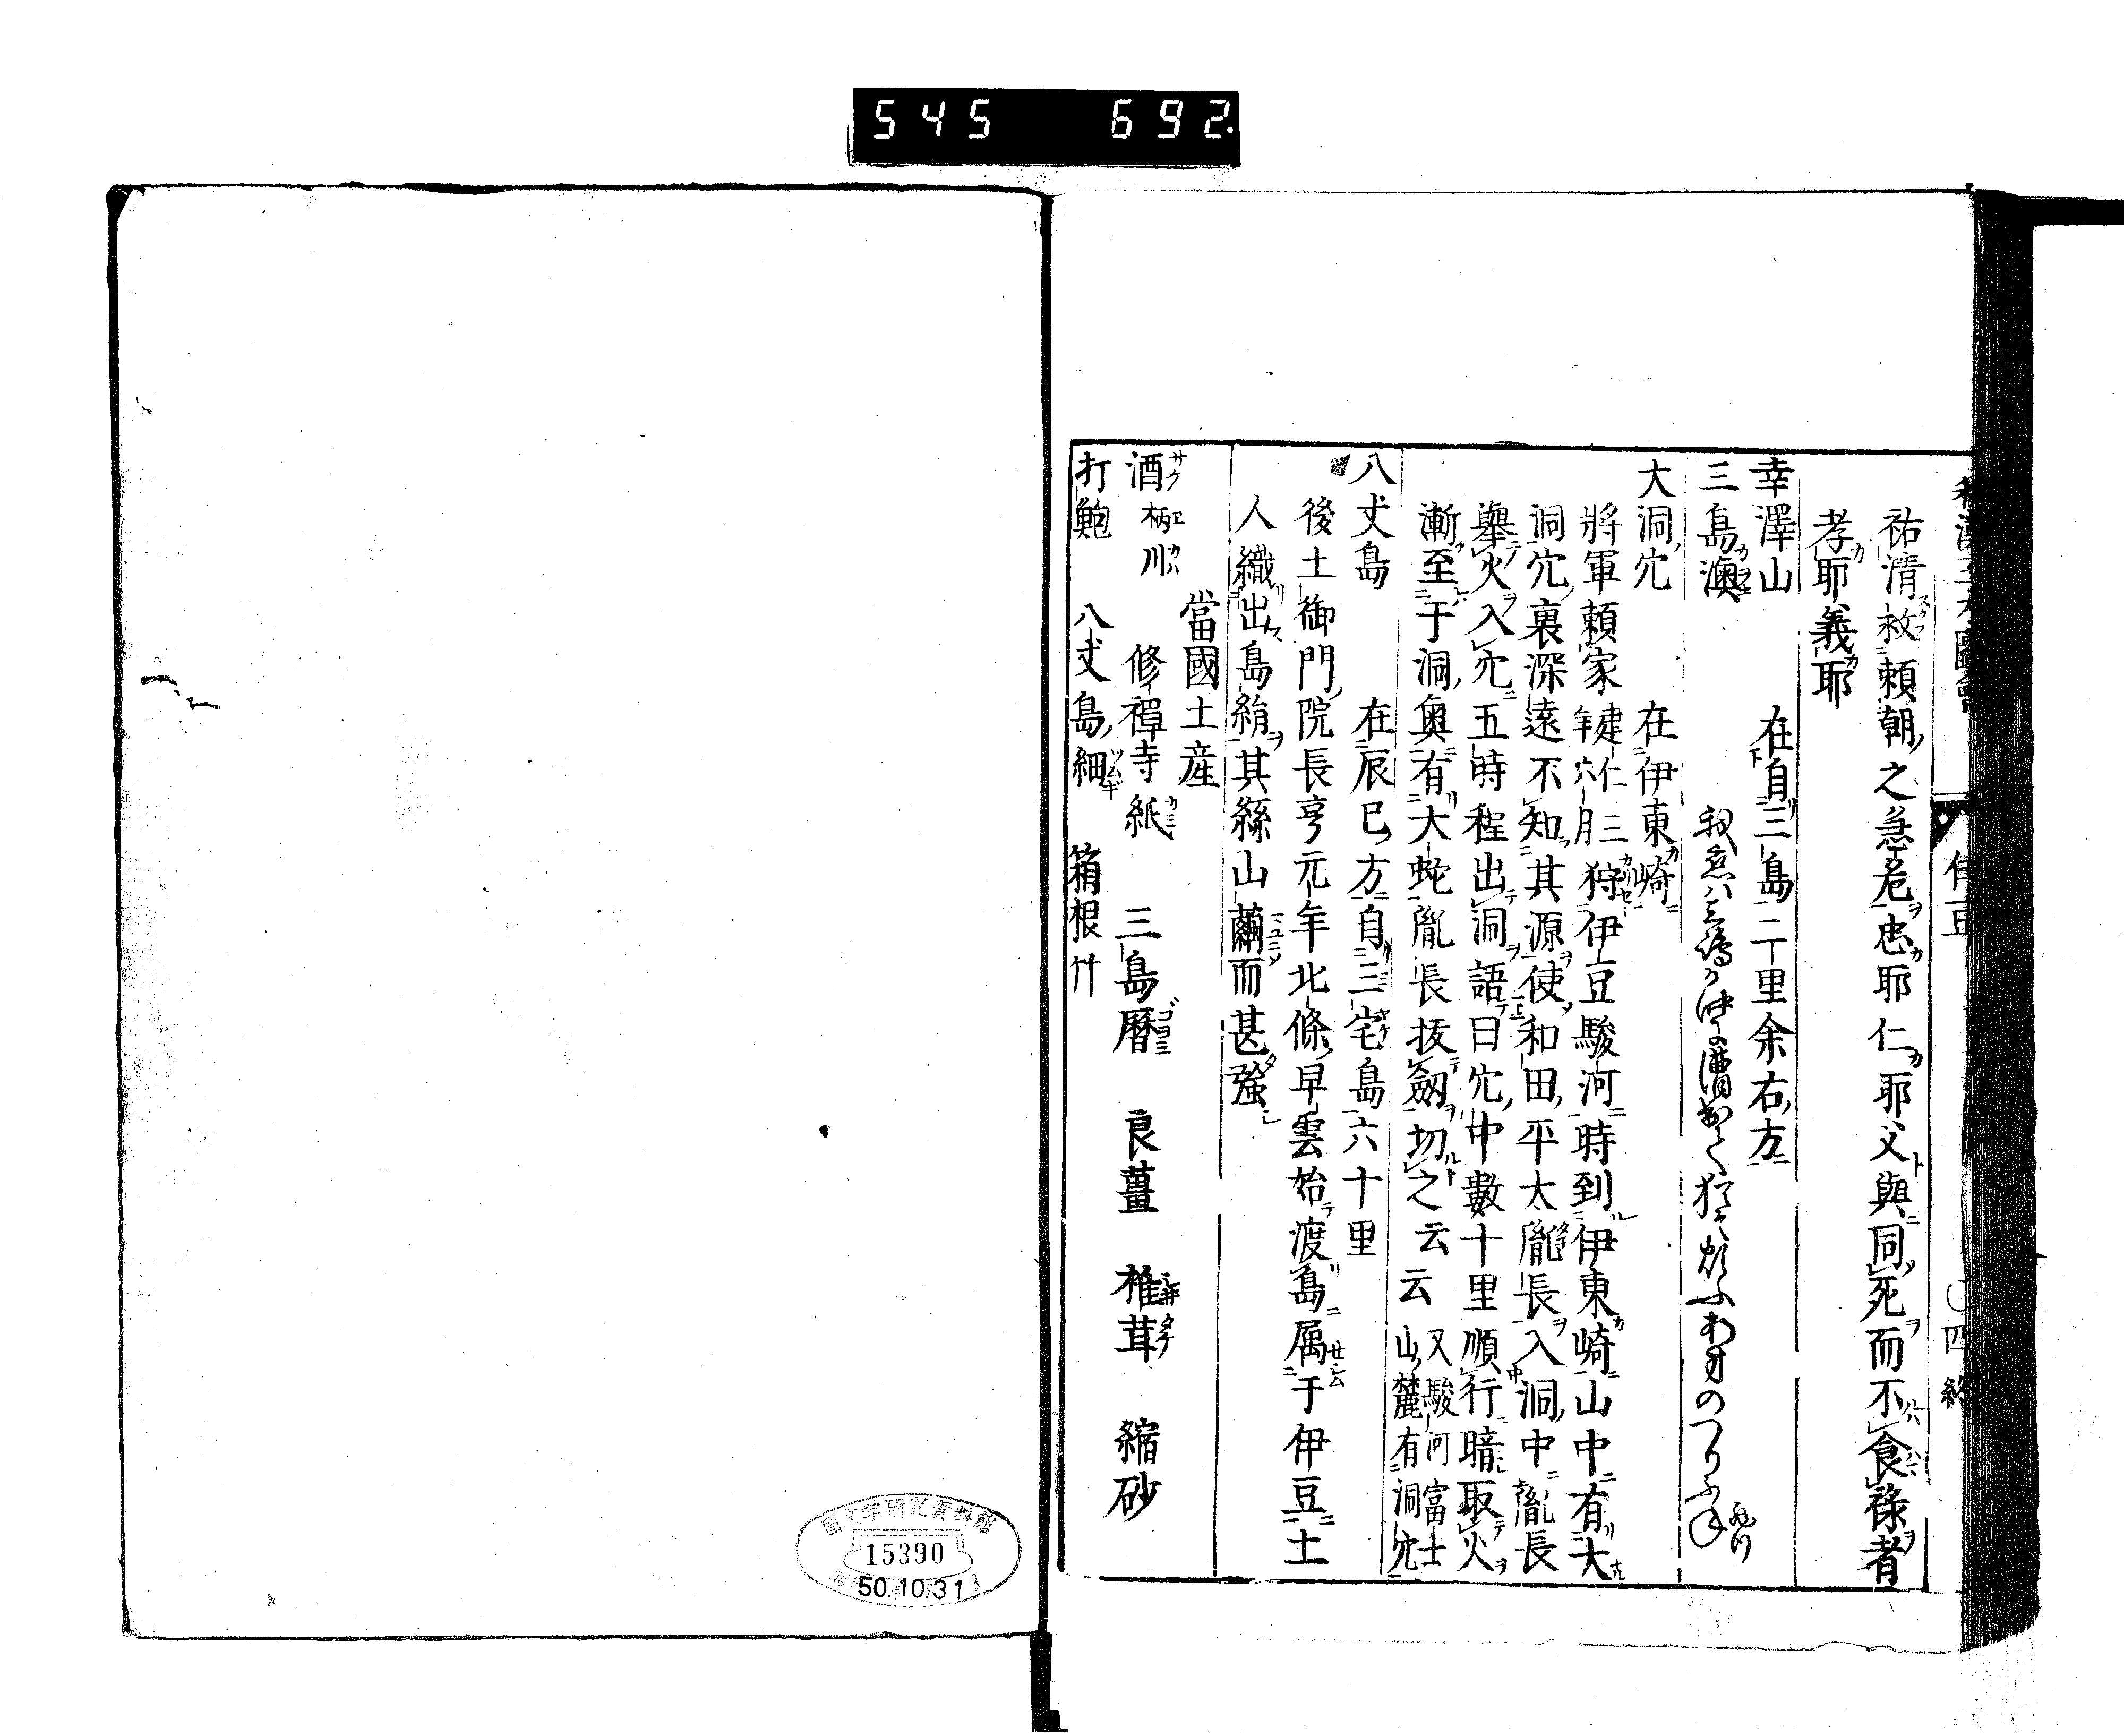 545 692
伊豆
四 終
祐清救頼朝之急危忠耶仁耶父與同死而不食祿者
孝耶義耶
幸澤山 在自三島二十里余右方
三島澳
大洞穴 在伊東崎
將軍頼家建仁三年六月狩伊豆駿河時到伊東崎山中有大
洞穴裏深遠不知其源使和田平太胤長入洞中胤長
擧火入穴五時程出洞語曰穴中數十里順行暗取火
漸至于洞奥有大蛇胤長抜劔切之云云 又駿河富士山麓有洞穴
八丈島 在辰巳方自三宅島六十里
後土御門院長享元年北條早雲始渡島属于伊豆土
人織出島絹其絲山繭而甚強
當國土産
酒 柄川 修禪寺紙 三島暦 良薑 椎茸 縮砂
打鮑 八丈島細 箱根竹
15390
50.10.31